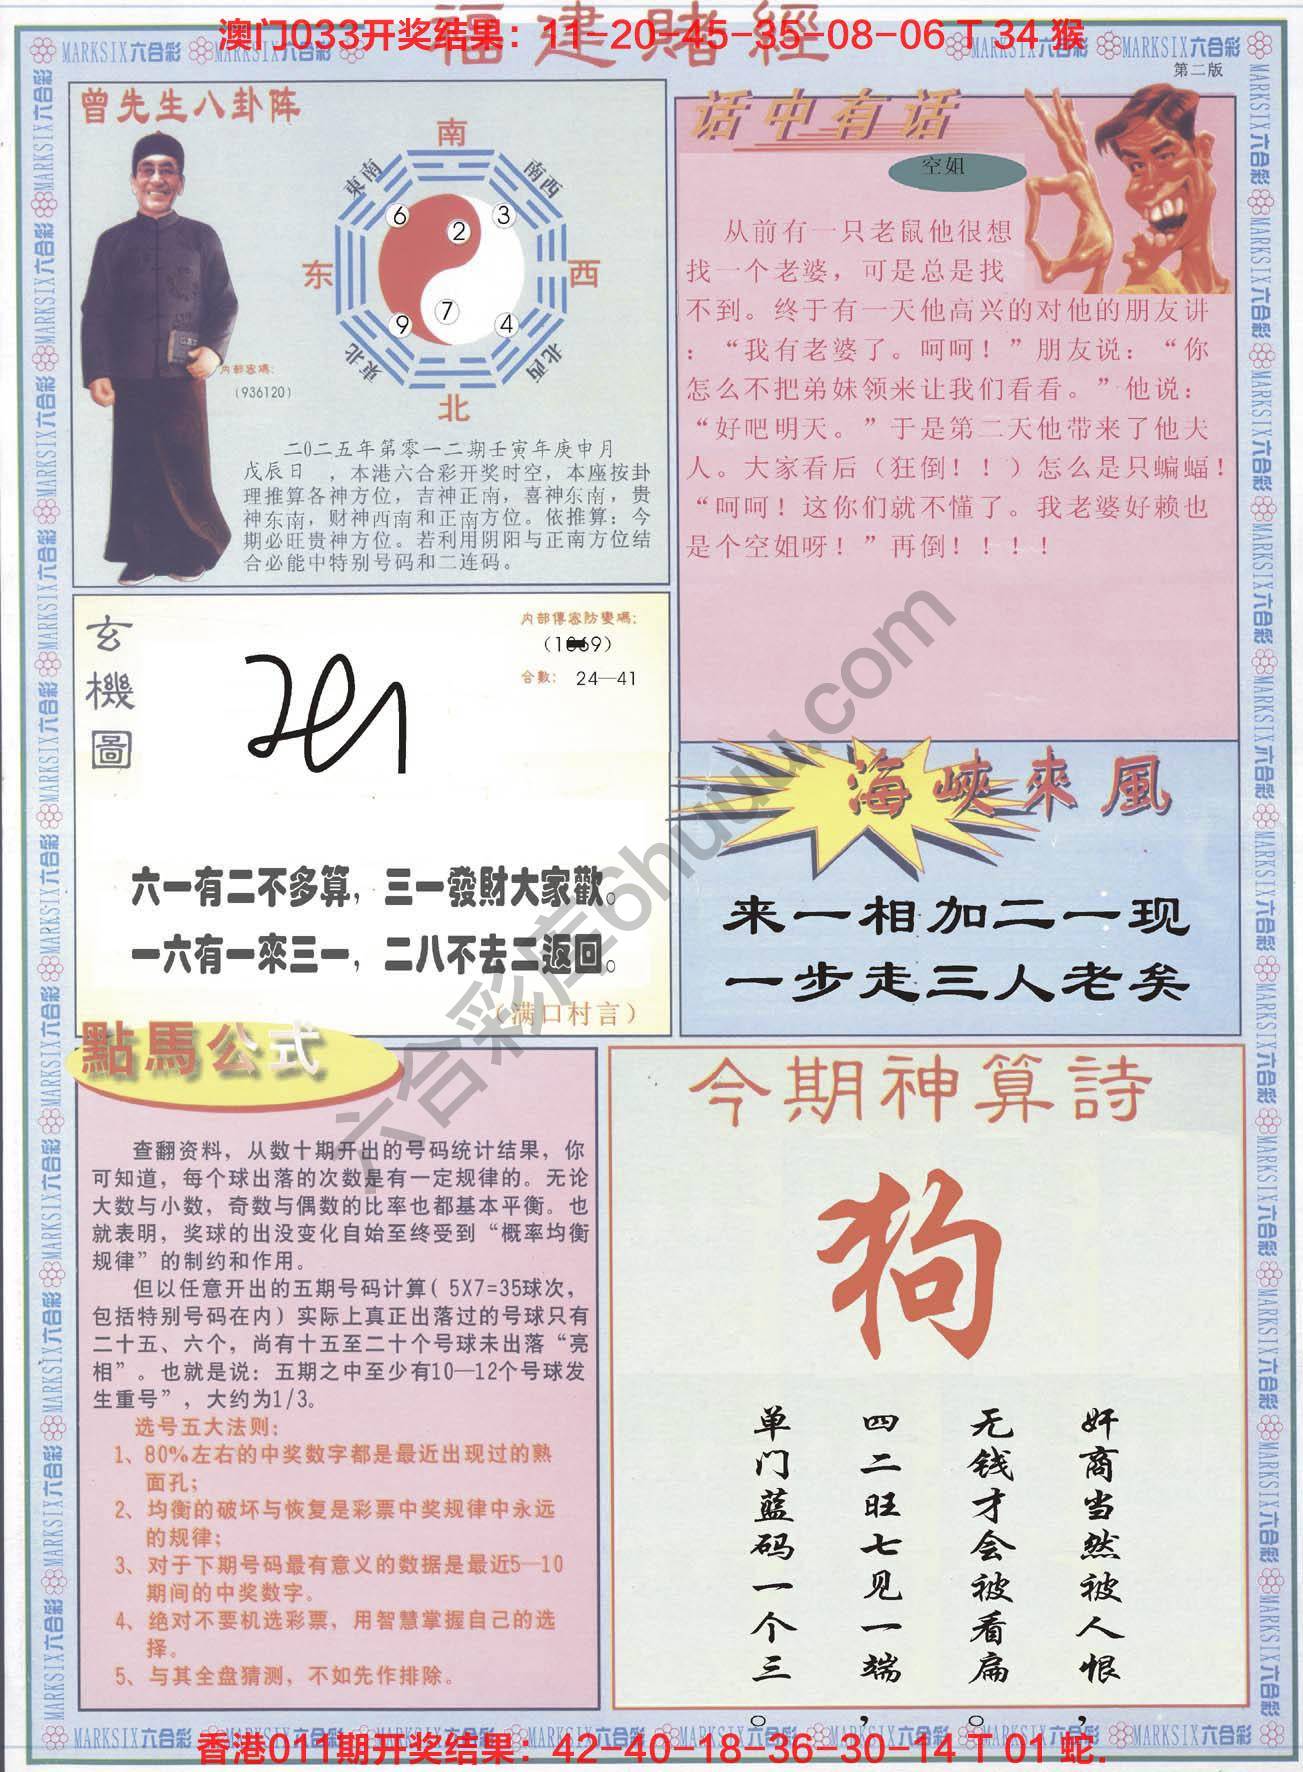 福建賭經
澳门033开奖结果：11-20-45-35-08-06 T 34 猴
MARKSIX六合彩
第二版
曾先生八卦阵
南
東南
南西
6
2
3
东
西
7
9
4
東北
北西
北
内部密碼：
（936120）
二0二五年第零一二期壬寅年庚申月
戊辰日　，本港六合彩开奖时空，本座按卦
理推算各神方位，吉神正南，喜神东南，贵
神东南，财神西南和正南方位。依推算：今
期必旺贵神方位。若利用阴阳与正南方位结
合必能中特别号码和二连码。
话中有话
空姐
从前有一只老鼠他很想
找一个老婆，可是总是找
不到。终于有一天他高兴的对他的朋友讲
：“我有老婆了。呵呵！”朋友说：“你
怎么不把弟妹领来让我们看看。”他说：
“好吧明天。”于是第二天他带来了他夫
人。大家看后（狂倒！！）怎么是只蝙蝠！
“呵呵！这你们就不懂了。我老婆好赖也
是个空姐呀！”再倒！！！！
玄機圖
内部傳密防變碼：
合數：
24—41
六一有二不多算，三一發財大家歡。
一六有一來三一，二八不去二返回。
（满口村言）
海峽來風
来一相加二一现
一步走三人老矣
點馬公式
查翻资料，从数十期开出的号码统计结果，你
可知道，每个球出落的次数是有一定规律的。无论
大数与小数，奇数与偶数的比率也都基本平衡。也
就表明，奖球的出没变化自始至终受到“概率均衡
规律”的制约和作用。
但以任意开出的五期号码计算（5X7=35球次，
包括特别号码在内）实际上真正出落过的号球只有
二十五、六个，尚有十五至二十个号球未出落“亮
相”。也就是说：五期之中至少有10—12个号球发
生重号”，大约为1/3。
选号五大法则：
1、80%左右的中奖数字都是最近出现过的熟
面孔；
2、均衡的破坏与恢复是彩票中奖规律中永远
的规律；
3、对于下期号码最有意义的数据是最近5—10
期间的中奖数字。
4、绝对不要机选彩票，用智慧掌握自己的选
择。
5、与其全盘猜测，不如先作排除。
今期神算詩
狗
奸商当然被人恨，
无钱才会被看扁。
四二旺七见一端，
单门蓝码一个三。
六合彩库6huuu.com
香港011期开奖结果：42-40-18-36-30-14 T 01 蛇.